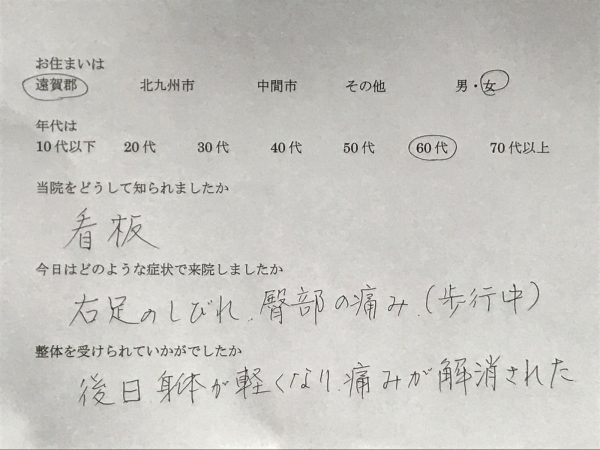 お住まいは
遠賀郡 北九州市 中間市 その他 男・女
年代は
10代以下 20代 30代 40代 50代 60代 70代以上
当院をどうして知られましたか
看板
今日はどのような症状で来院しましたか
右足のしびれ、臀部の痛み、(歩行中)
整体を受けられていかがでしたか
後日、身体が軽くなり、痛みが解消された